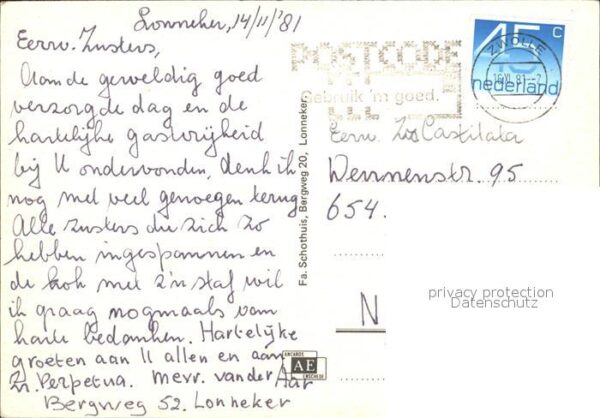 Lonneker, 14/11/'81
Eerw. Zusters,
Aan de geweldig goed
verzorgde dag en de
hartelijke gastvrijheid
bij U ondervonden, denk ik
nog met veel genoegen terug
Alle zusters die zich zo
hebben ingespannen en
de kok met z'n staf wil
ik graag nogmaals van
harte bedanken. Hartelijke
groeten aan U allen en aan
Zr. Perpetua. Mevr. van der Aar
Bergweg 52. Lonneker
Fa. Schothuis, Bergweg 20, Lonneker
ANCARDS
AE
ENSCHEDE
POSTCODE
Gebruik 'm goed.
ZWOLLE
16 XI 81 - 2
45 c
nederland
Eerw. Zr Castilata
Wemmenstr. 95
654.
N
privacy protection
Datenschutz